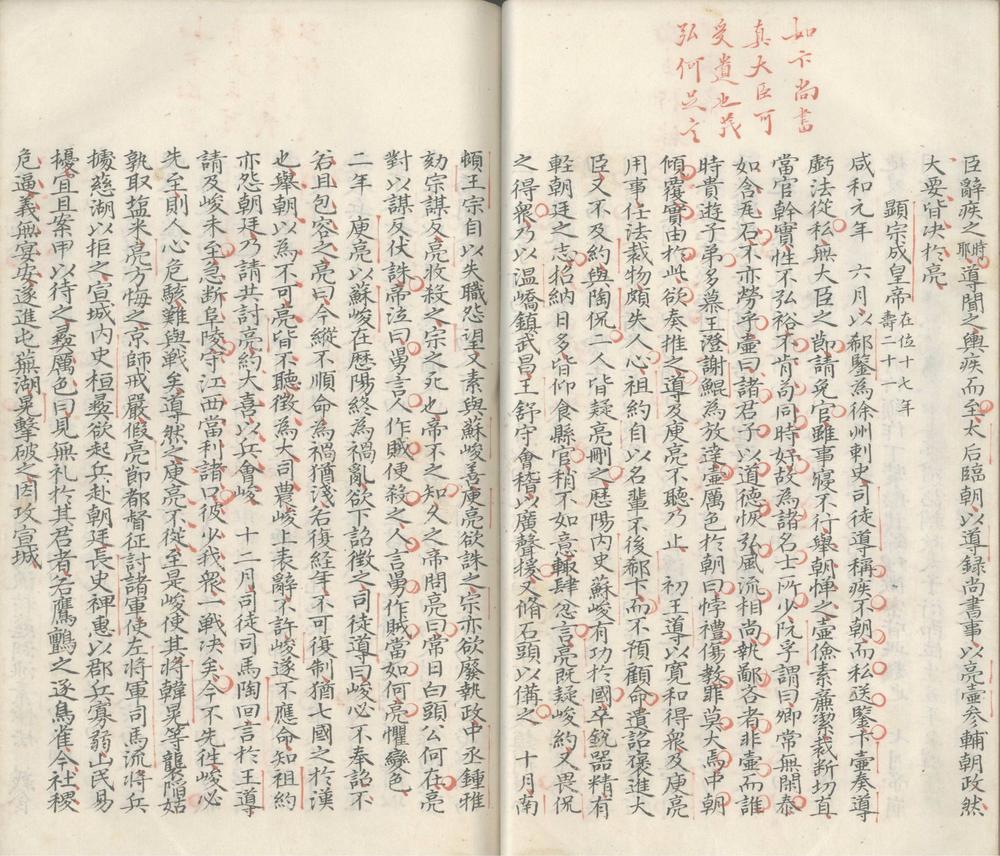 如卞尚書
真大臣可
受遺也茂
弘何足言
臣辭疾之時耶導聞之輿疾而至太后臨朝以導録尚書事以亮壼参輔朝政然
大要皆决於亮
顯宗成皇帝在位十七年壽二十一
咸和元年　六月以郗鑒為徐州刺史司徒導稱疾不朝而私送鑒卞壼奏導
虧法從私無大臣之節請免官雖事寢不行舉朝憚之壼儉素廉潔裁断切直
當官幹實性不弘裕不肯苟同時好故為諸名士所少阮孚謂曰卿常無閑泰
如含瓦石不亦勞乎壼曰諸君子以道德恢弘風流相尚執鄙吝者非壼而誰
時貴遊子弟多慕王澄謝鯤為放達壼厲色於朝曰悖禮傷教罪莫大焉中朝
傾覆實由於此欲奏推之導及庾亮不聽乃止　初王導以寛和得衆及庾亮
用事任法裁物頗失人心祖約自以名輩不後郗卞而不預顧命遺詔褒進大
臣又不及約與陶侃二人皆疑亮刪之歴陽内史蘇峻有功於國卒銳器精有
輕朝廷之志招納日多皆仰食縣官稍不如意輙肆忿言亮既疑峻約又畏侃
之得衆乃以温嶠鎮武昌王舒守會稽以廣聲援又脩石頭以備之　十月南
頓王宗自以失職怨望又素與蘇峻善庾亮欲誅之宗亦欲廢執政中丞鍾雅
劾宗謀反亮收殺之宗之死也帝不之知久之帝問亮曰常日白頭公何在亮
對以謀反伏誅帝泣曰舅言人作賊便殺之人言舅作賊當如何亮懼變色
二年　庾亮以蘇峻在歴陽終為禍亂欲下詔徴之司徒導曰峻必不奉詔不
若且包容之亮曰今縱不順命為禍猶淺若復経年不可復制猶七國之於漢
也舉朝以為不可亮皆不聽徴為大司農峻上表辭不許峻遂不應命知祖約
亦怨朝廷乃請共討亮約大喜以兵會峻　十二月司徒司馬陶回言於王導
請及峻未至急断阜陵守江西當利諸口彼少我衆一戦决矣今不先徃峻必
先至則人心危駭難與戰矣導然之庾亮不從至是峻使其将韓晃等襲䧟姑
孰取塩米亮方悔之京師戒嚴假亮節都督征討諸軍使左将軍司馬流将兵
據慈湖以拒之宣城内史桓彞欲起兵赴朝廷長史裨惠以郡兵寡弱山民易
擾宜且案甲以待之彞厲色曰見無礼於其君者若鷹鸇之逐鳥雀今社稷
危逼義無宴安遂進屯蕪湖晃擊破之因攻宣城